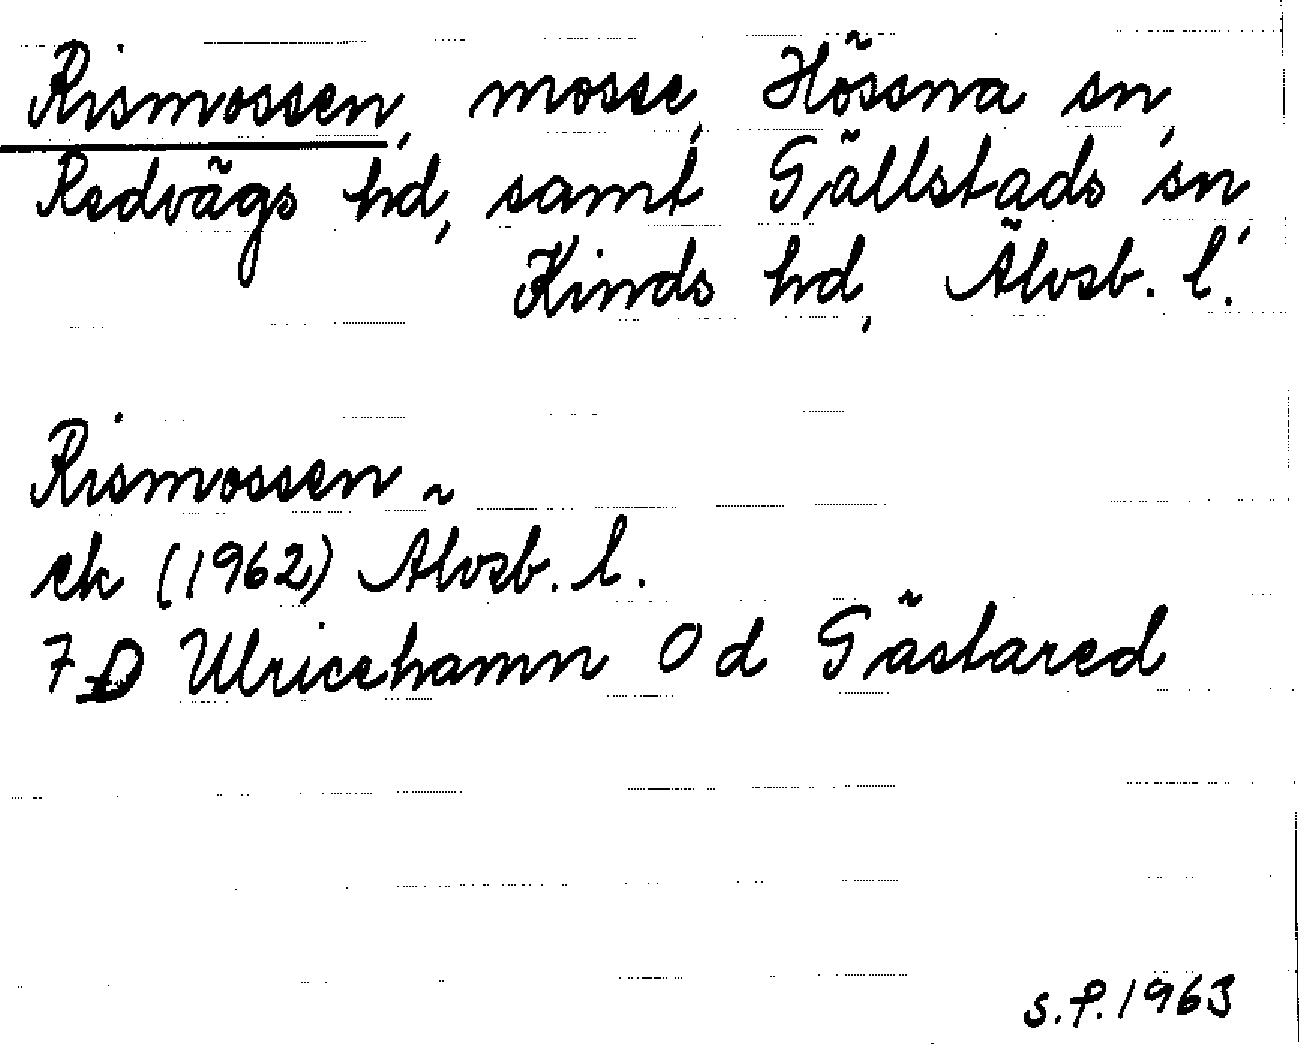 Rismossen, mosse, Hössna sn,
Redvägs hd, samt Gällstads sn,
Kinds hd, Älvsb. l.
Rismossen ~
ek (1962) Älvsb. l.
7 D Ulricehamn 0 d Gästared
S.P. 1963